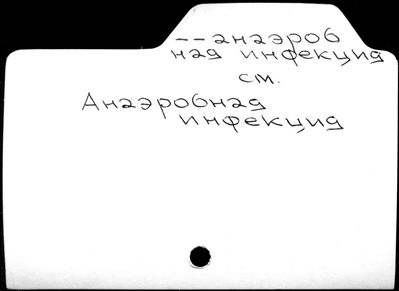 --анаэроб
ная инфекция
см.
Анаэробная
инфекция